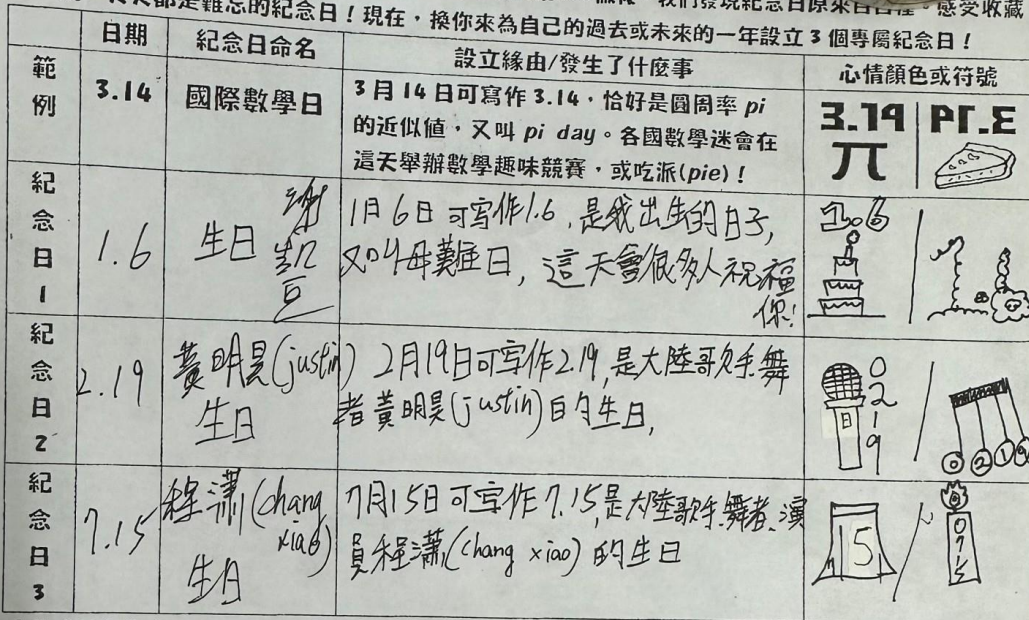 天都是難忘的紀念日！現在，換你來為自己的過去或未來的一年設立3個專屬紀念日！
日期
紀念日命名
設立緣由/發生了什麼事
心情顏色或符號
範例
3.14
國際數學日
3月14日可寫作3.14，恰好是圓周率pi
的近似值，又叫pi day。各國數學迷會在
這天舉辦數學趣味競賽，或吃派(pie)！
3.14
PI.E
π
紀念日1
1.6
生日
1月6日可写作1.6,是我出生的日子,
又叫母難日,這天會很多人祝福
你!
1.6
紀念日2
2.19
黃明昊(justin)
生日
2月19日可写作2.19,是大陸歌手、舞
者黃明昊(justin)的生日,
0
2
1
9
日
0 2 1 9
紀念日3
7.15
程瀟(chang
xiao)
生日
7月15日可写作7.15,是大陸歌手、舞者、演
員程瀟(chang xiao)的生日
15
0
7
1
5